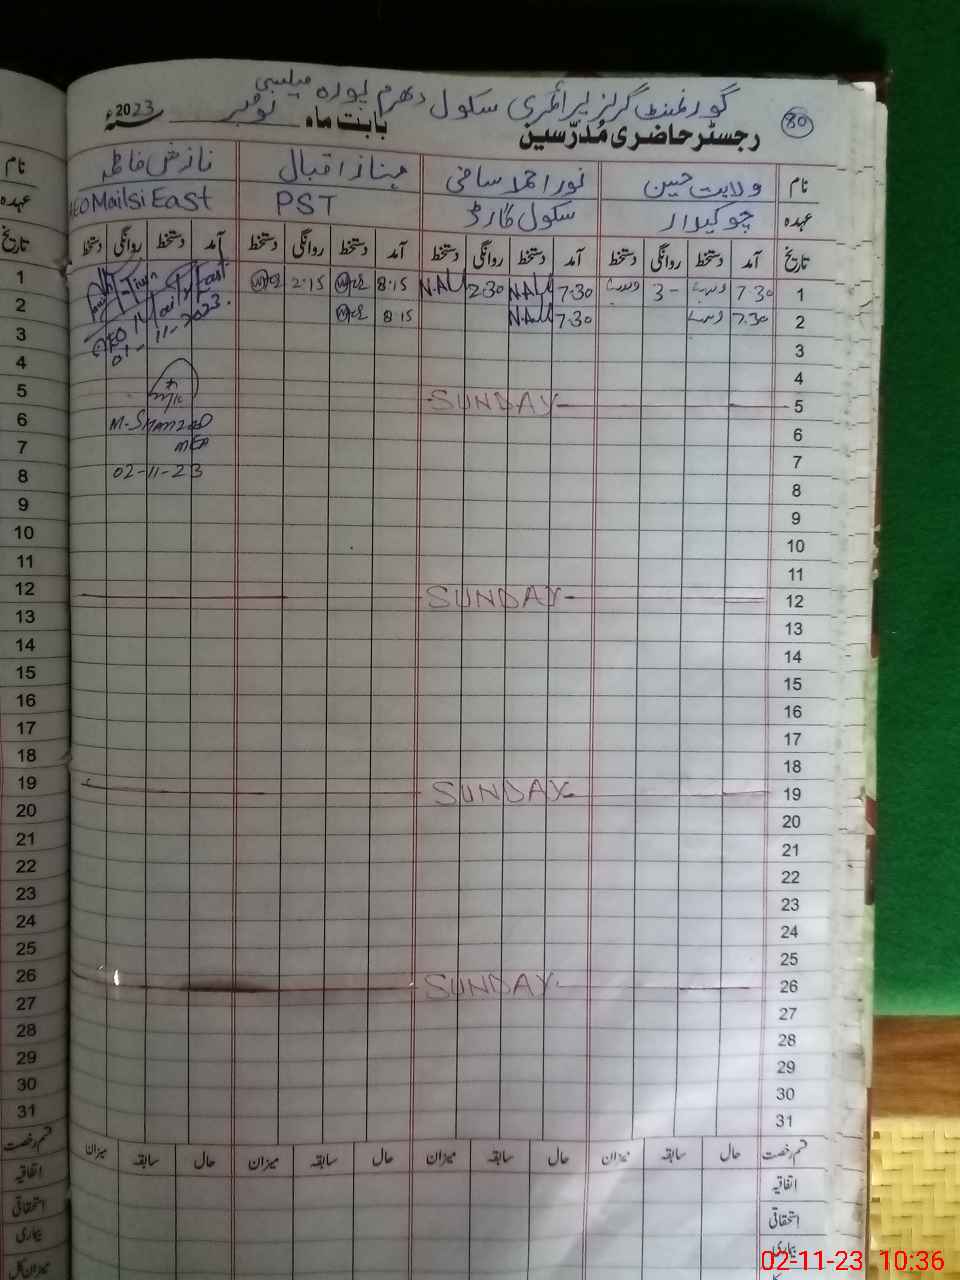 گورنمنٹ گرلز پرائمری سکول دھرم پورہ میلسی
80
رجسٹر حاضری مُدرّسین بابت ماہ نومبر سنہ 2023ء
نام ولایت حسین نور احمد ساقی مہناز اقبال نازش فاطمہ نام
عہدہ چوکیدار سکول گارڈ PST AEO Mailsi East عہدہ
تاریخ آمد دستخط روانگی دستخط آمد دستخط روانگی دستخط آمد دستخط روانگی دستخط آمد دستخط روانگی دستخط تاریخ
1 7.30 3- 7.30 N.Ali 2:30 N.Ali 8.15 2.15 1
2 7.30 7.30 N.Ali 8.15 2
AEO Mailsi East
01-11-2023.
3 3
4 4
5 SUNDAY 5
6 M. SHAHZAD 6
7 MEA 7
8 02-11-23 8
9 9
10 10
11 11
12 SUNDAY 12
13 13
14 14
15 15
16 16
17 17
18 18
19 SUNDAY 19
20 20
21 21
22 22
23 23
24 24
25 25
26 SUNDAY 26
27 27
28 28
29 29
30 30
31 31
قسم رخصت حال سابقہ میزان حال سابقہ میزان حال سابقہ میزان حال سابقہ میزان قسم رخصت
اتفاقیہ اتفاقیہ
استحقاقی استحقاقی
بیماری بیماری
میزان کل
02-11-23 10:36